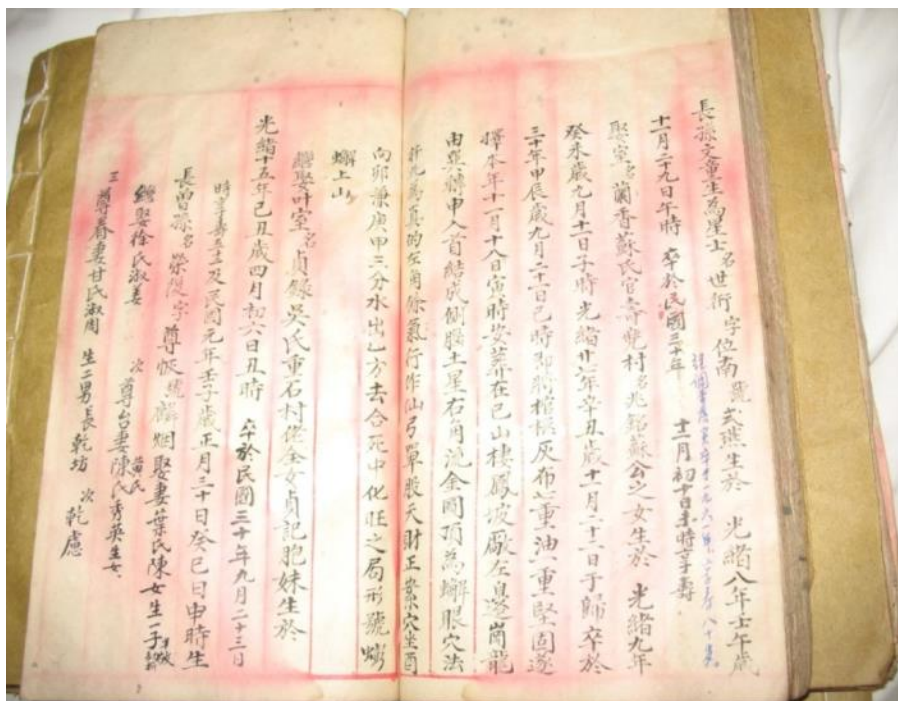 長孫文童生為星士名世術字位南號式燕生於 光緒八年壬午歲
十二月二十九日年時 卒於民國三十年 十二月初十日未時享壽
娶室名蘭香蘇氏官奇雙村名兆銘蘇公之女生於 光緒九年
癸未歲九月十二日子時光緒廿七年辛丑歲十一月二十二日于歸卒於
三十年甲辰歲九月二十二日巳時即將棺槨灰布七重油一重堅固遂
擇本年十一月十八日寅時安葬在巳山棲鳳坡厰左自邊崗龍
由巽轉申入首結成側腦土星右角流金圓頂為蠏眼穴法
扦九為真的左角餘氣行作仙弓單股天財正案穴坐酉
向卯兼庚甲三分水出乙方去合死中化旺之局形號蟛
蠏上山
繼娶叶室名貞錄吳氏重石村佬全女貞記胞妹生於
光緒十五年己丑歲四月初六日丑時 卒於民國三十年九月二十三日
時享壽五十三及民國元年壬子歲正月三十日癸巳日申時生
長曾孫名榮俊字尊帳號麟烟娶妻葉氏陳女生一子
繼娶徐氏淑姜 次尊台妻陳氏秀英生女
黃氏
三尊眷妻甘氏淑周 生二男長乾坊 次乾應